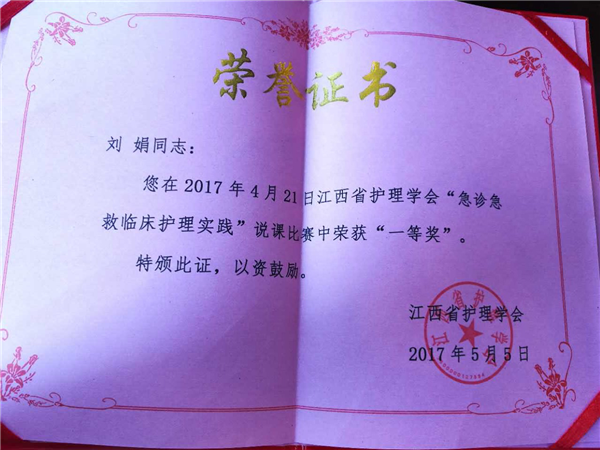 荣誉证书
刘 娟同志：
您在2017年4月21日江西省护理学会“急诊急
救临床护理实践”说课比赛中荣获“一等奖”。
特颁此证，以资鼓励。
江西省护理学会
2017年5月5日
江西省护理学会